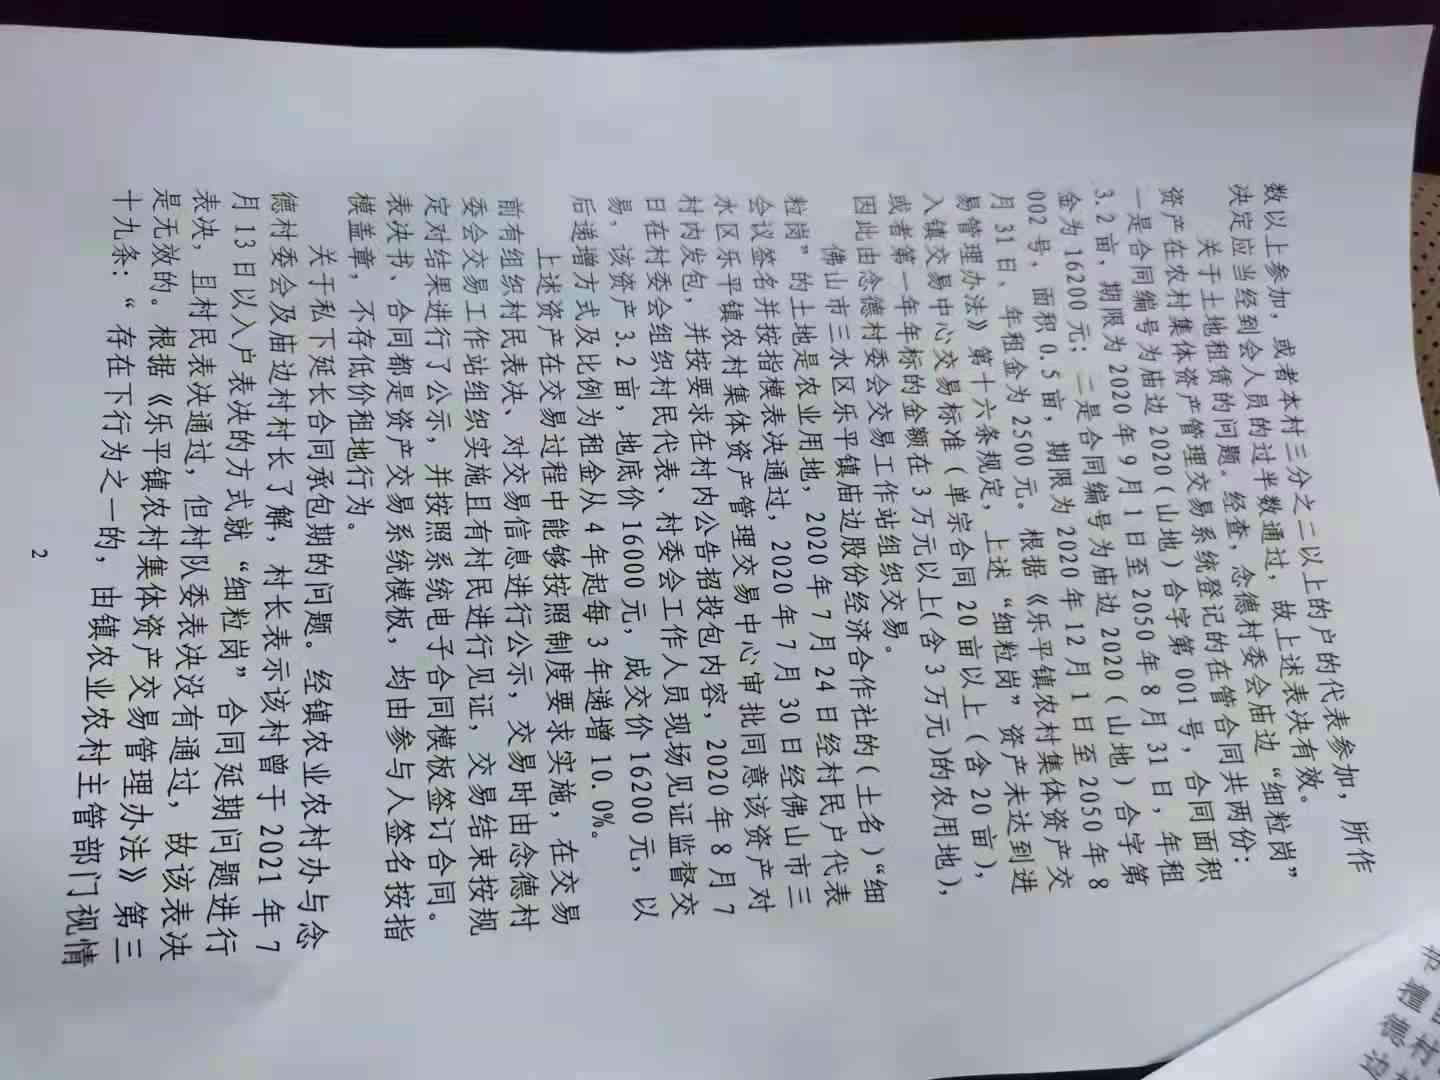 数以上参加，或者本村三分之二以上的户的代表参加，所作
决定应当经到会人员的过半数通过，故上述表决有效。
关于土地租赁的问题。经查，念德村委会庙边“细粒岗”
资产在农村集体资产管理交易系统登记的在管合同共两份：
一是合同编号为庙边2020（山地）合字第001号，合同面积
3.2亩，期限为2020年9月1日至2050年8月31日，年租
金为16200元；二是合同编号为庙边2020（山地）合字第
002号，面积0.5亩，期限为2020年12月1日至2050年8
月31日，年租金为2500元。根据《乐平镇农村集体资产交
易管理办法》第十六条规定，上述“细粒岗”资产未达到进
入镇交易中心交易标准（单宗合同20亩以上（含20亩），
或者第一年年标的金额在3万元以上(含3万元)的农用地)，
因此由念德村委会交易工作站组织交易。
佛山市三水区乐平镇庙边股份经济合作社的（土名）“细
粒岗”的土地是农业用地，2020年7月24日经村民户代表
会议签名并按指模表决通过，2020年7月30日经佛山市三
水区乐平镇农村集体资产管理交易中心审批同意该资产对
村内发包，并按要求在村内公告招投包内容，2020年8月7
日在村委会组织村民代表、村委会工作人员现场见证监督交
易，该资产3.2亩，地底价16000元，成交价16200元，以
后递增方式及比例为租金从4年起每3年递增10.0%。
上述资产在交易过程中能够按照制度要求实施，在交易
前有组织村民表决、对交易信息进行公示，交易时由念德村
委会交易工作站组织实施且有村民进行见证，交易结束按规
定对结果进行了公示，并按照系统电子合同模板签订合同。
表决书、合同都是资产交易系统模板，均由参与人签名按指
模盖章，不存低价租地行为。
关于私下延长合同承包期的问题。经镇农业农村办与念
德村委会及庙边村村长了解，村长表示该村曾于2021年7
月13日以入户表决的方式就“细粒岗”合同延期问题进行
表决，且村民表决通过，但村队委表决没有通过，故该表决
是无效的。根据《乐平镇农村集体资产交易管理办法》第三
十九条：“存在下行为之一的，由镇农业农村主管部门视情
2
德村